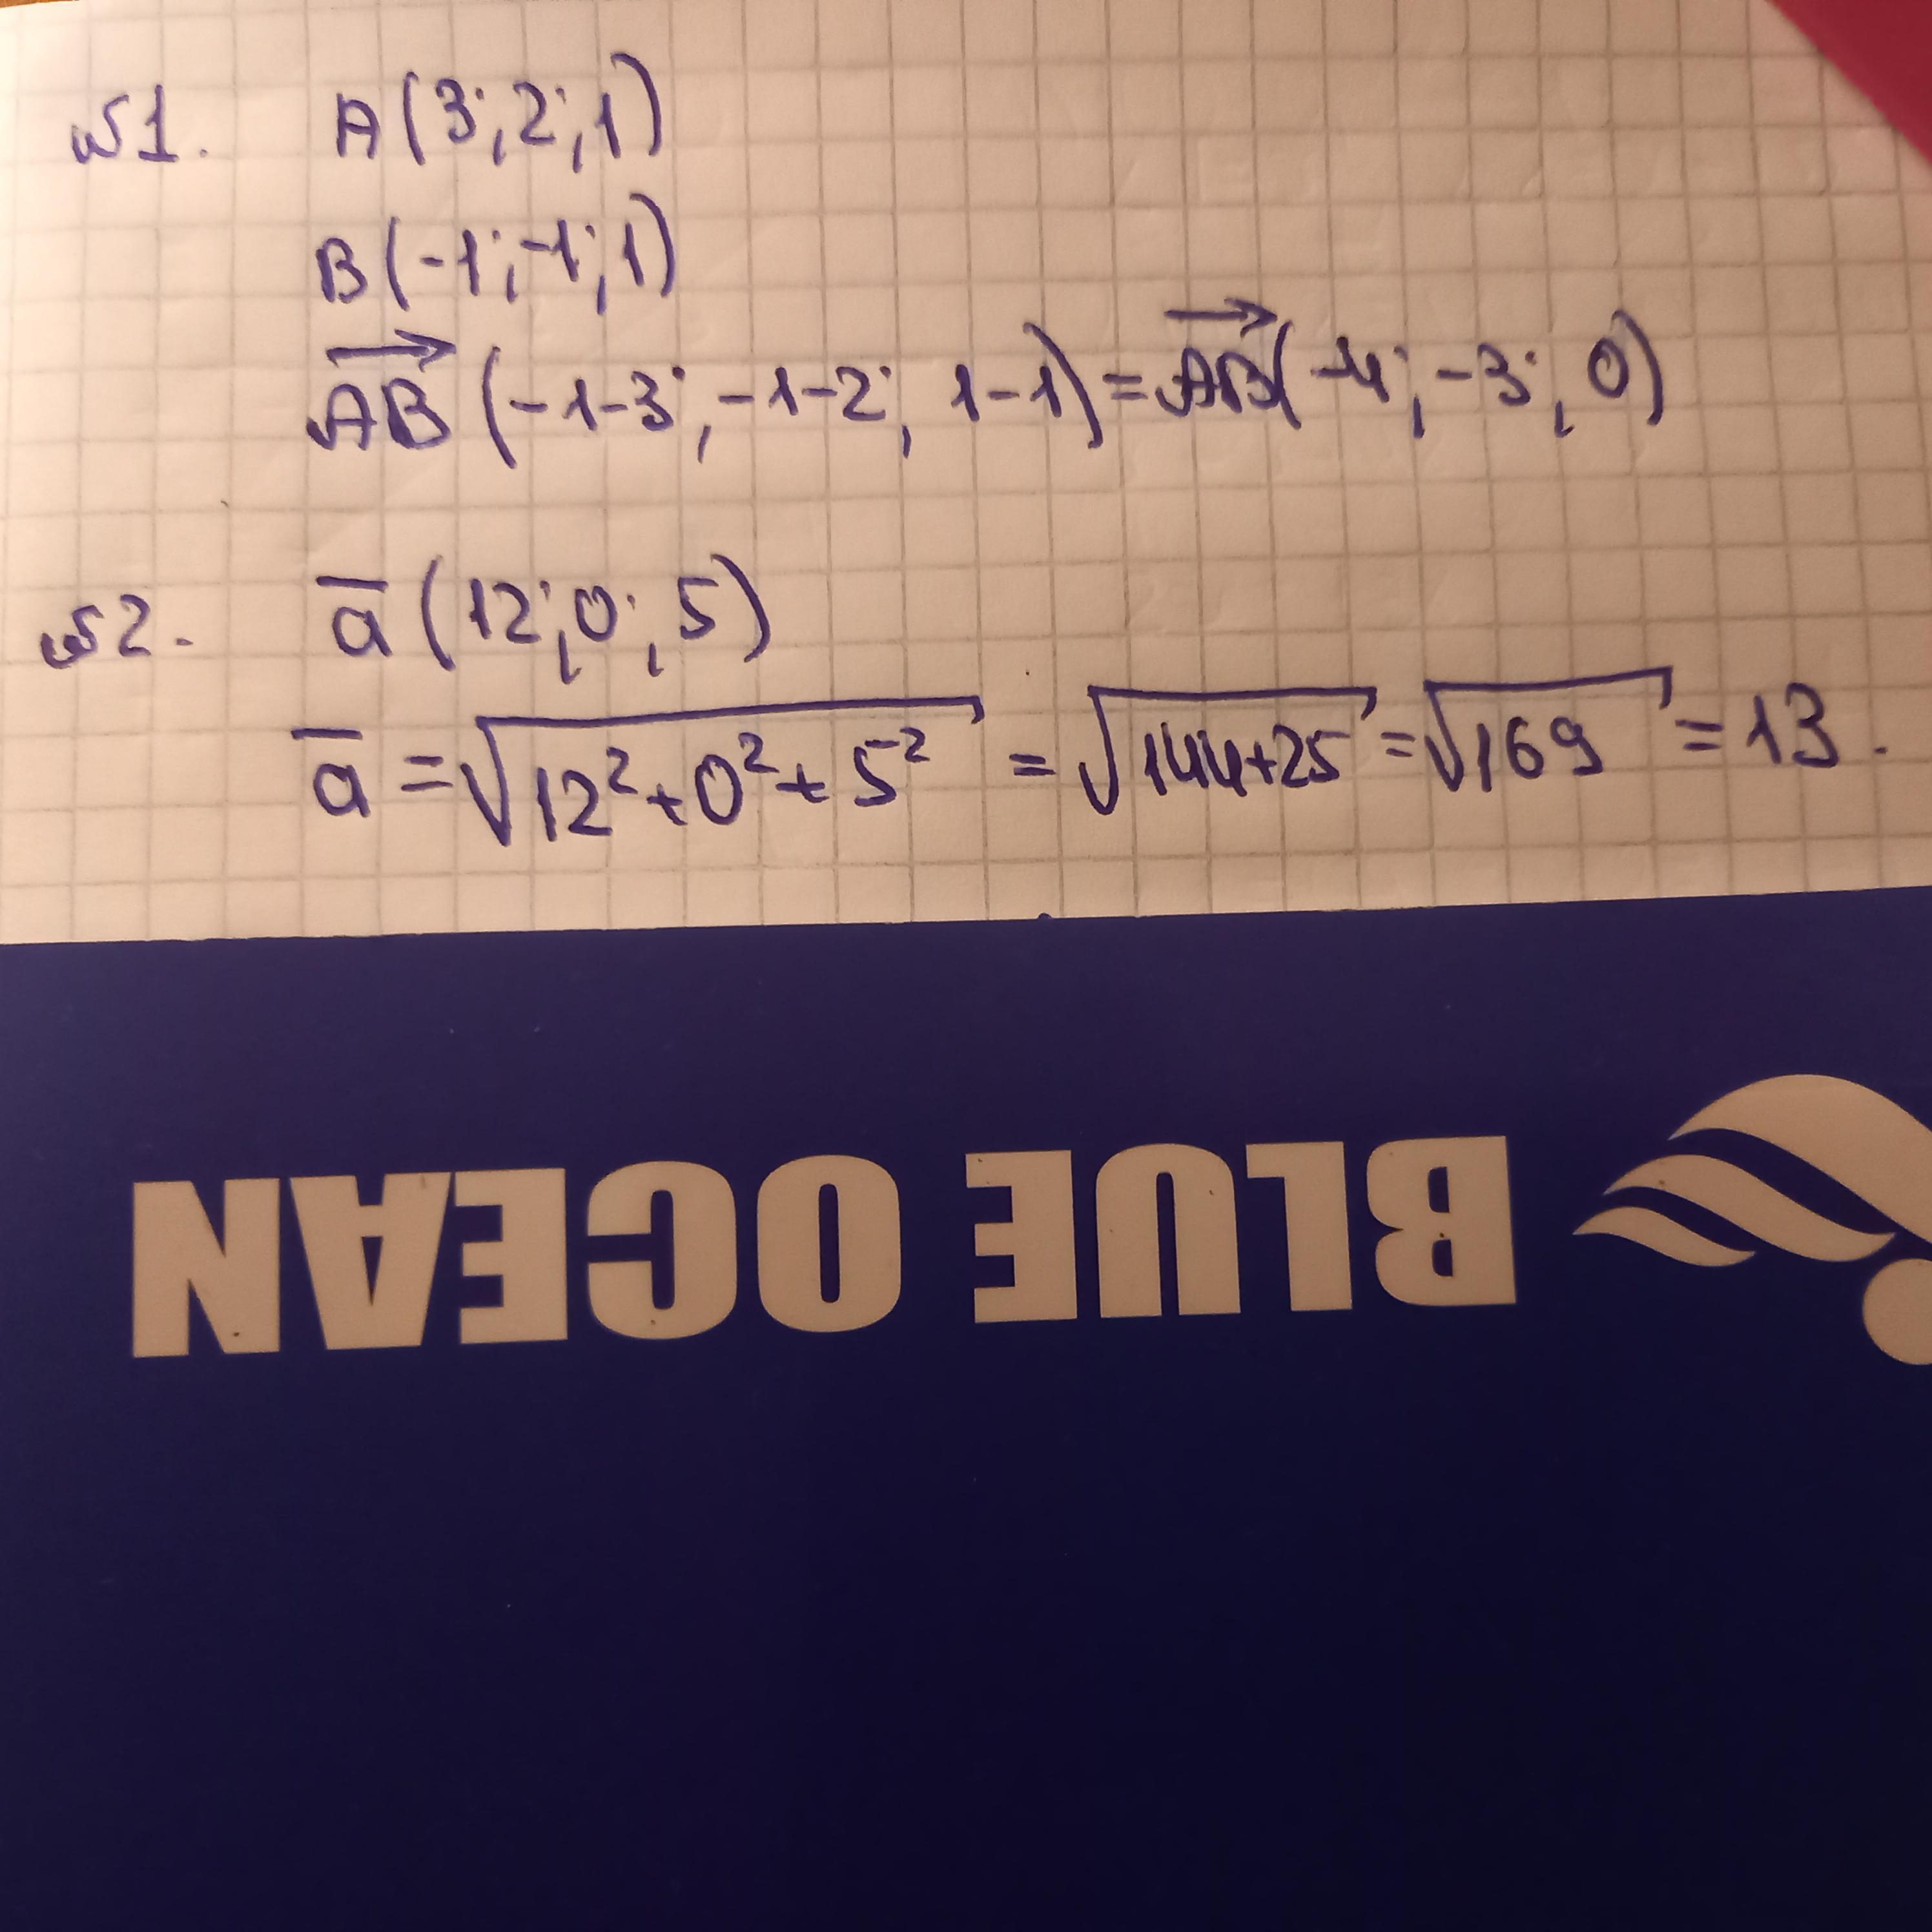 №1. A(3; 2; 1)
B(-1; -1; 1)
AB→(-1-3; -1-2; 1-1) = AB→(-4; -3; 0)
№2. a̅(12; 0; 5)
a̅ = √(12²+0²+5²) = √(144+25) = √169 = 13.
BLUE OCEAN